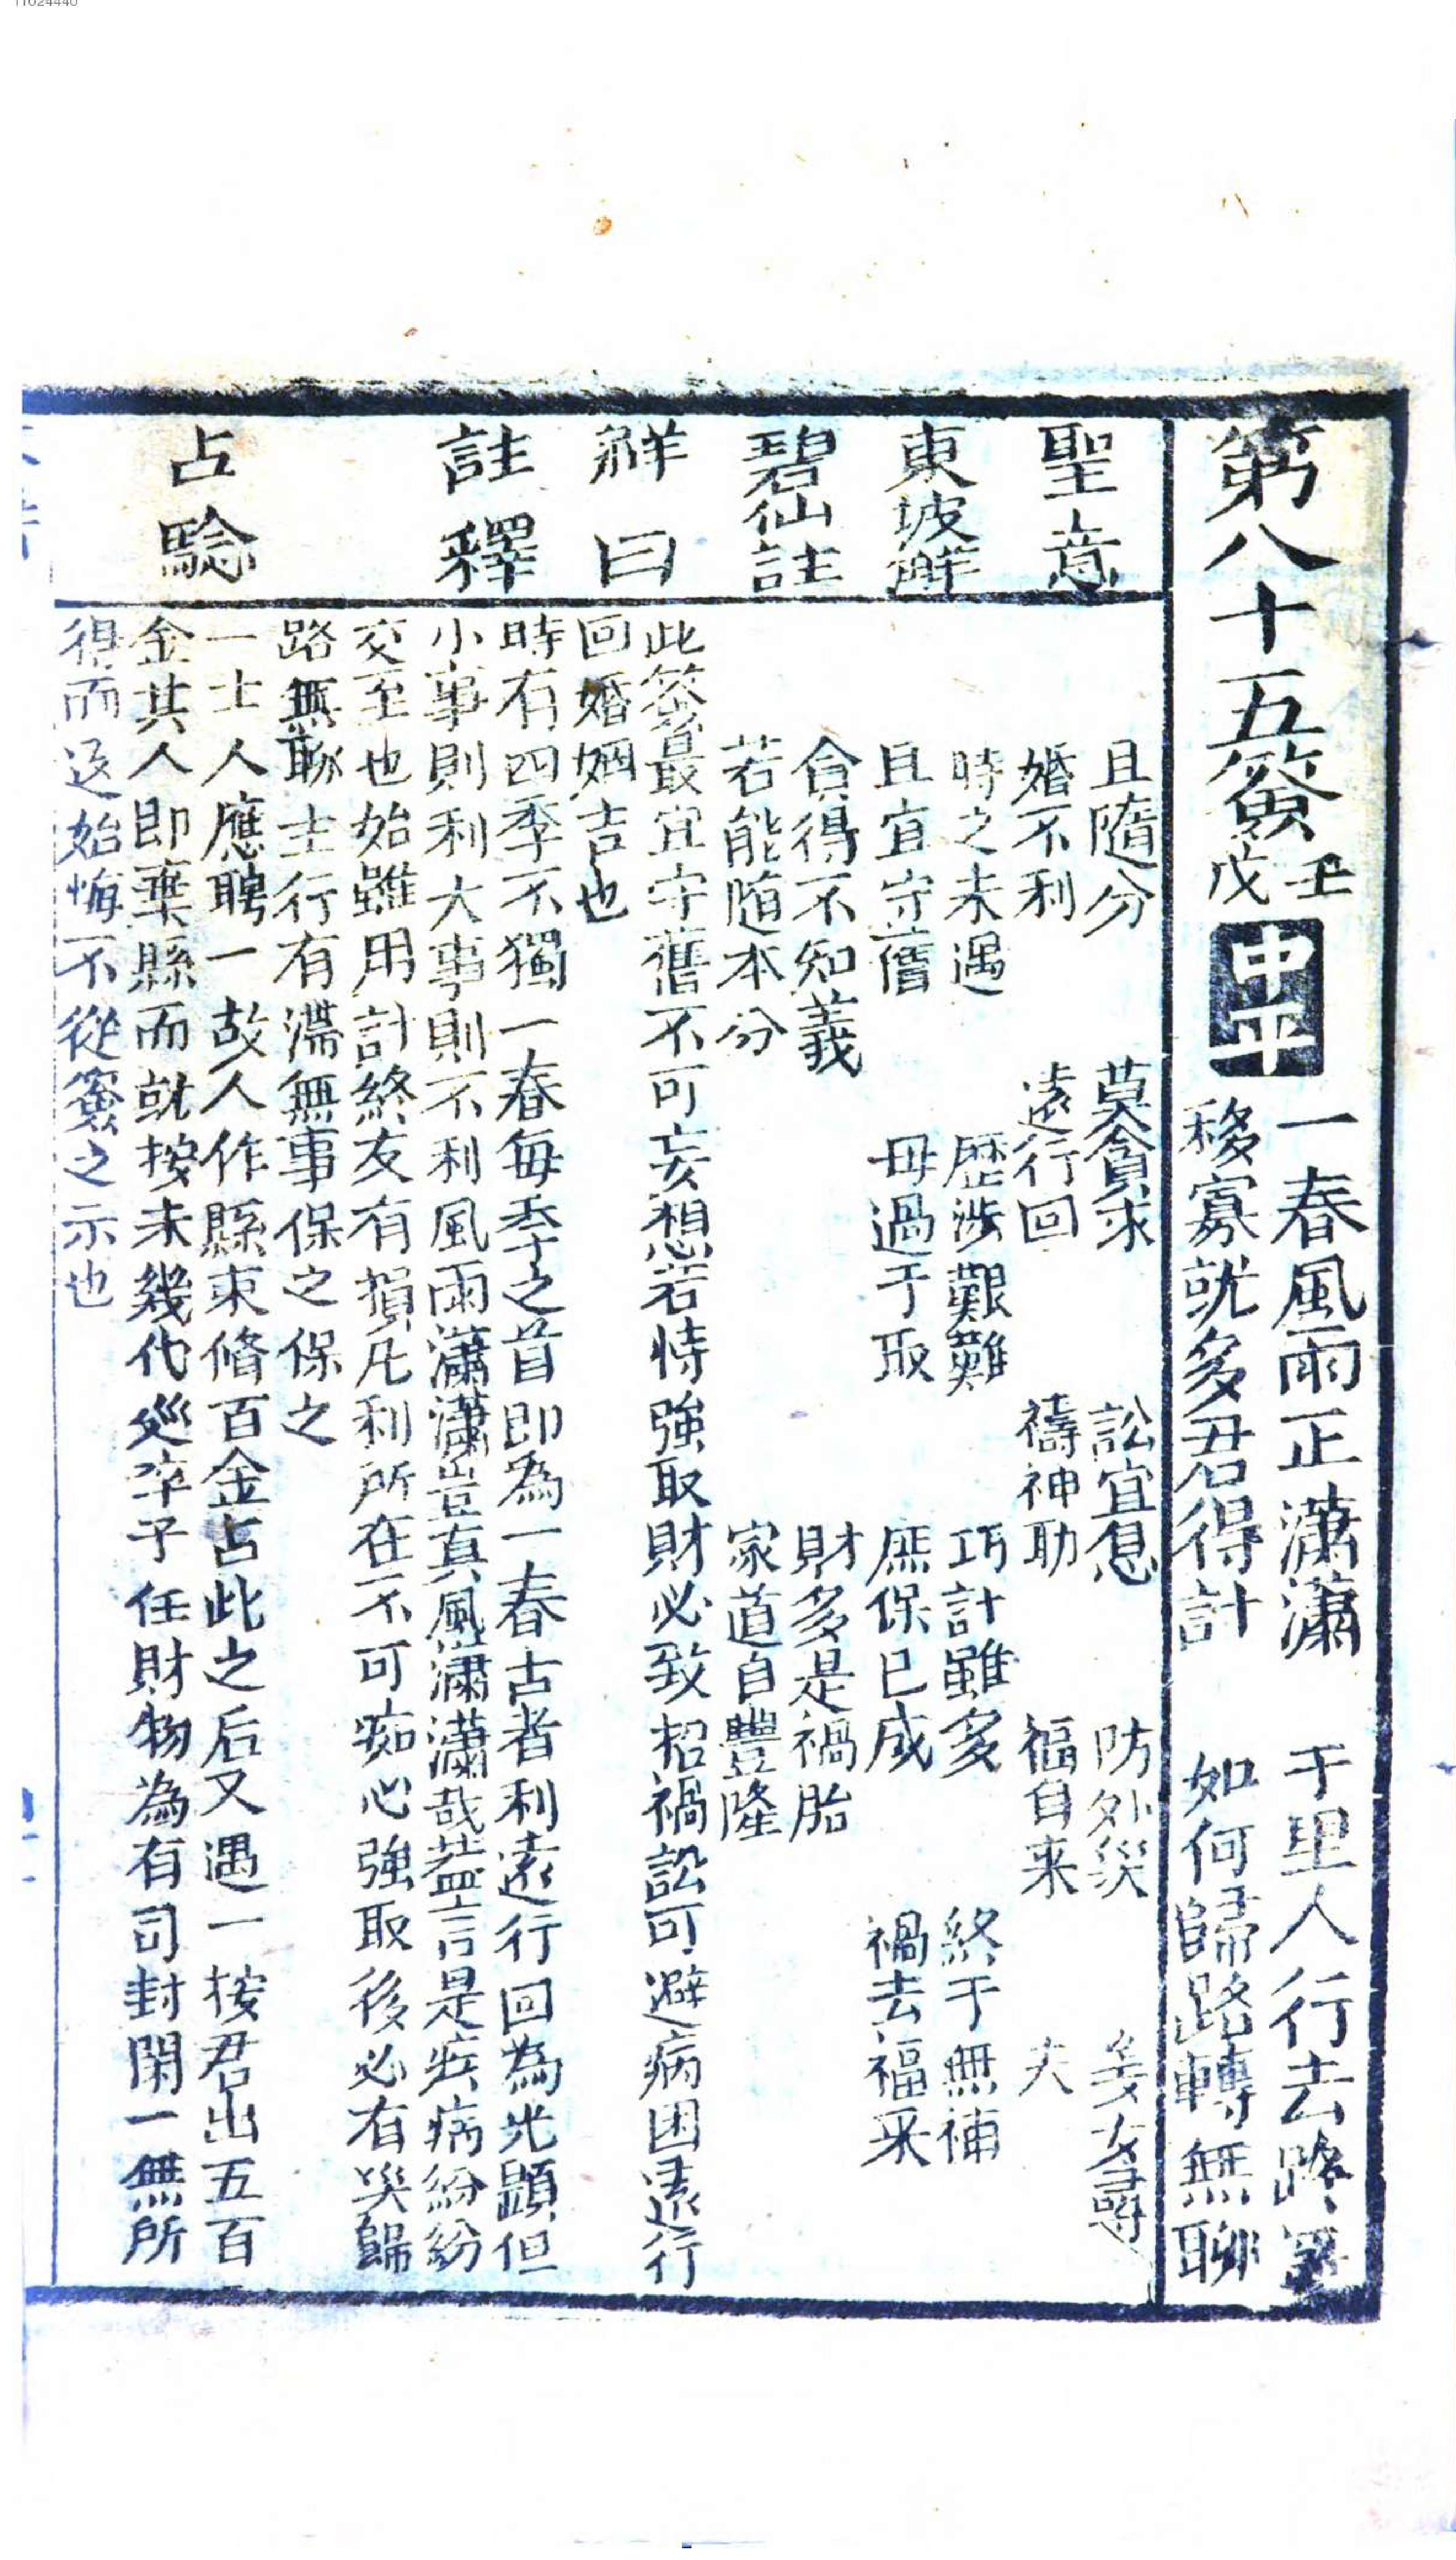 11024440
第八十五簽 壬戊 中平
一春風雨正瀟瀟 千里人行去路
移寡就多君得計 如何歸路轉無聊
聖意
且隨分 莫貪求 訟宜息 防外災
婚不利 遠行回 禱神助 福自来
東坡解
時之未遇 歷涉艱難 巧計雖多 終于無補
且宜守舊 毋過于取 庶保已成 禍去福来
碧仙註
貪得不知義 財多是禍胎
若能隨本分 家道自豐隆
解曰
此簽最宜守舊不可妄想若恃強取財必致招禍訟可避病困遠行
回婚姻吉也
註釋
時有四季不獨一春每季之首即為一春古者利遠行回為光顯但
小事則利大事則不利風雨瀟瀟豈真風瀟瀟哉葢言是疾病紛紛
交至也始雖用計終友有損凡利所在不可痴心強取後必有災歸
路無聊主行有滯無事保之保之
占驗
一士人應聘一故人作縣束脩百金占此之后又遇一按君出五百
金其人即棄縣而就按未幾代巡卒于任財物為有司封閑一無所
得而返始悔不從簽之示也